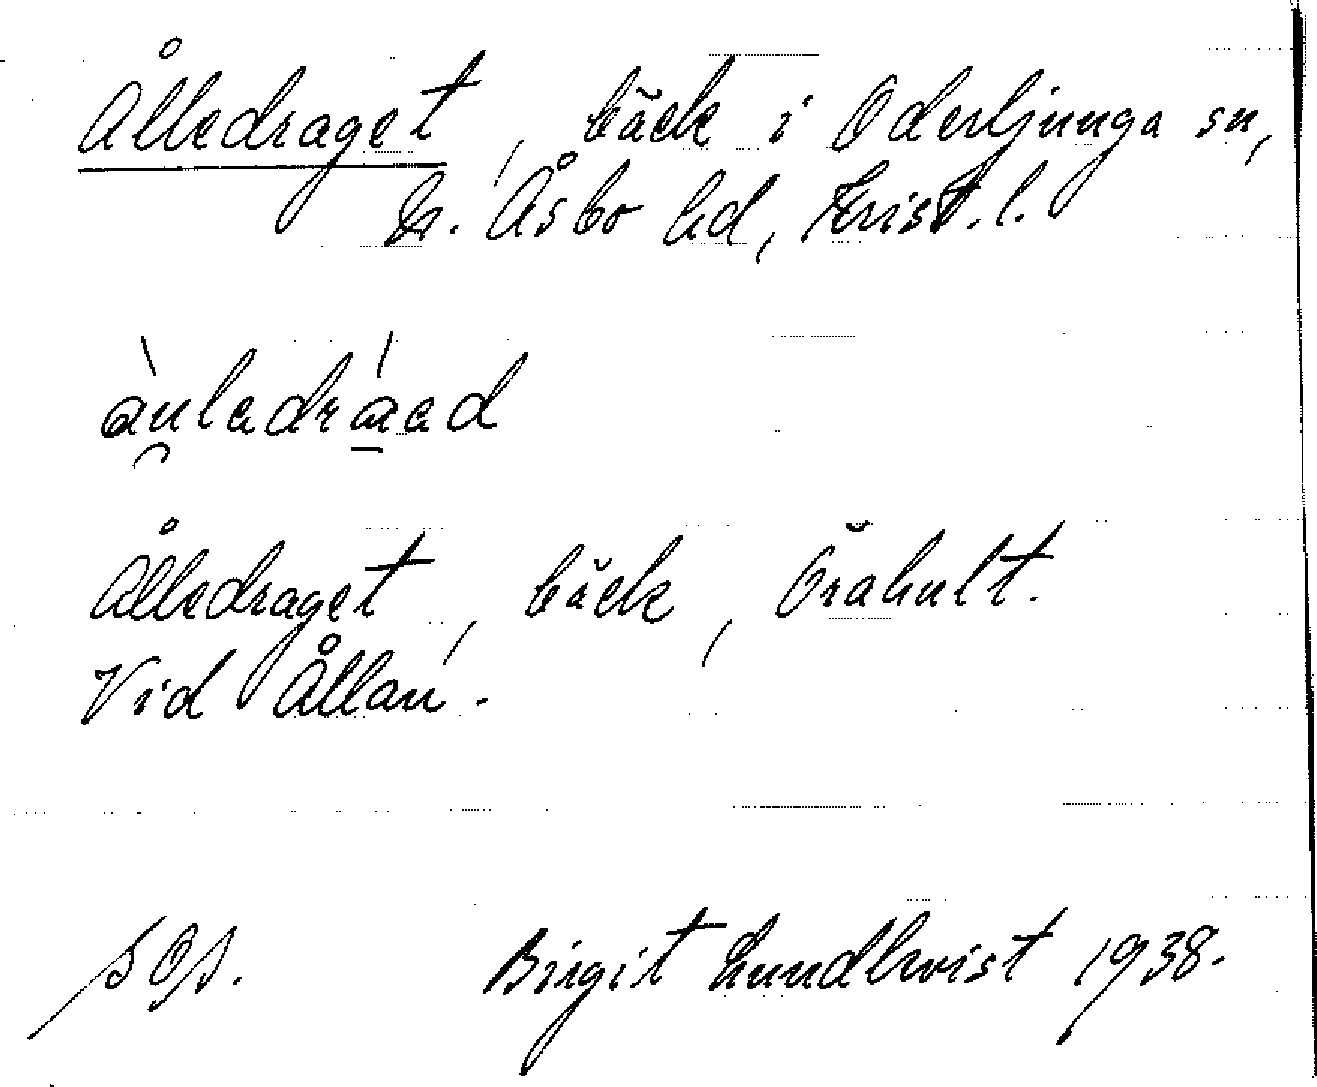 Ålledraget, bäck i Oderljunga sn,
N. Åsbo hd, Krist. l.
Ålledraget, bäck, Örahult.
Vid Ållan.
Birgit Lundkvist 1938.